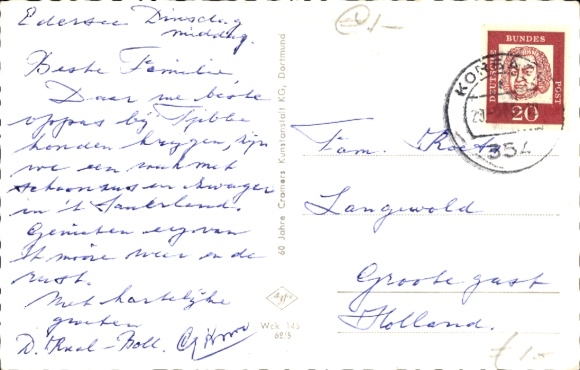 Edersee Dinsdag
middag.
Beste Familie,
Daar we beste
oppas bij Tjibbe
konden krijgen, zijn
we een week met
schoonzus en zwager
in 't Sauerland.
Genieten erg van
't mooie weer en de
rust.
Met hartelijke
groeten
D.
60 Jahre Cramers Kunstanstalt KG, Dortmund
Wck 145
DEUTSCHE BUNDESPOST
20
KORBACH
354
Fam.
Langewold
Grootegast
Holland.
1.-